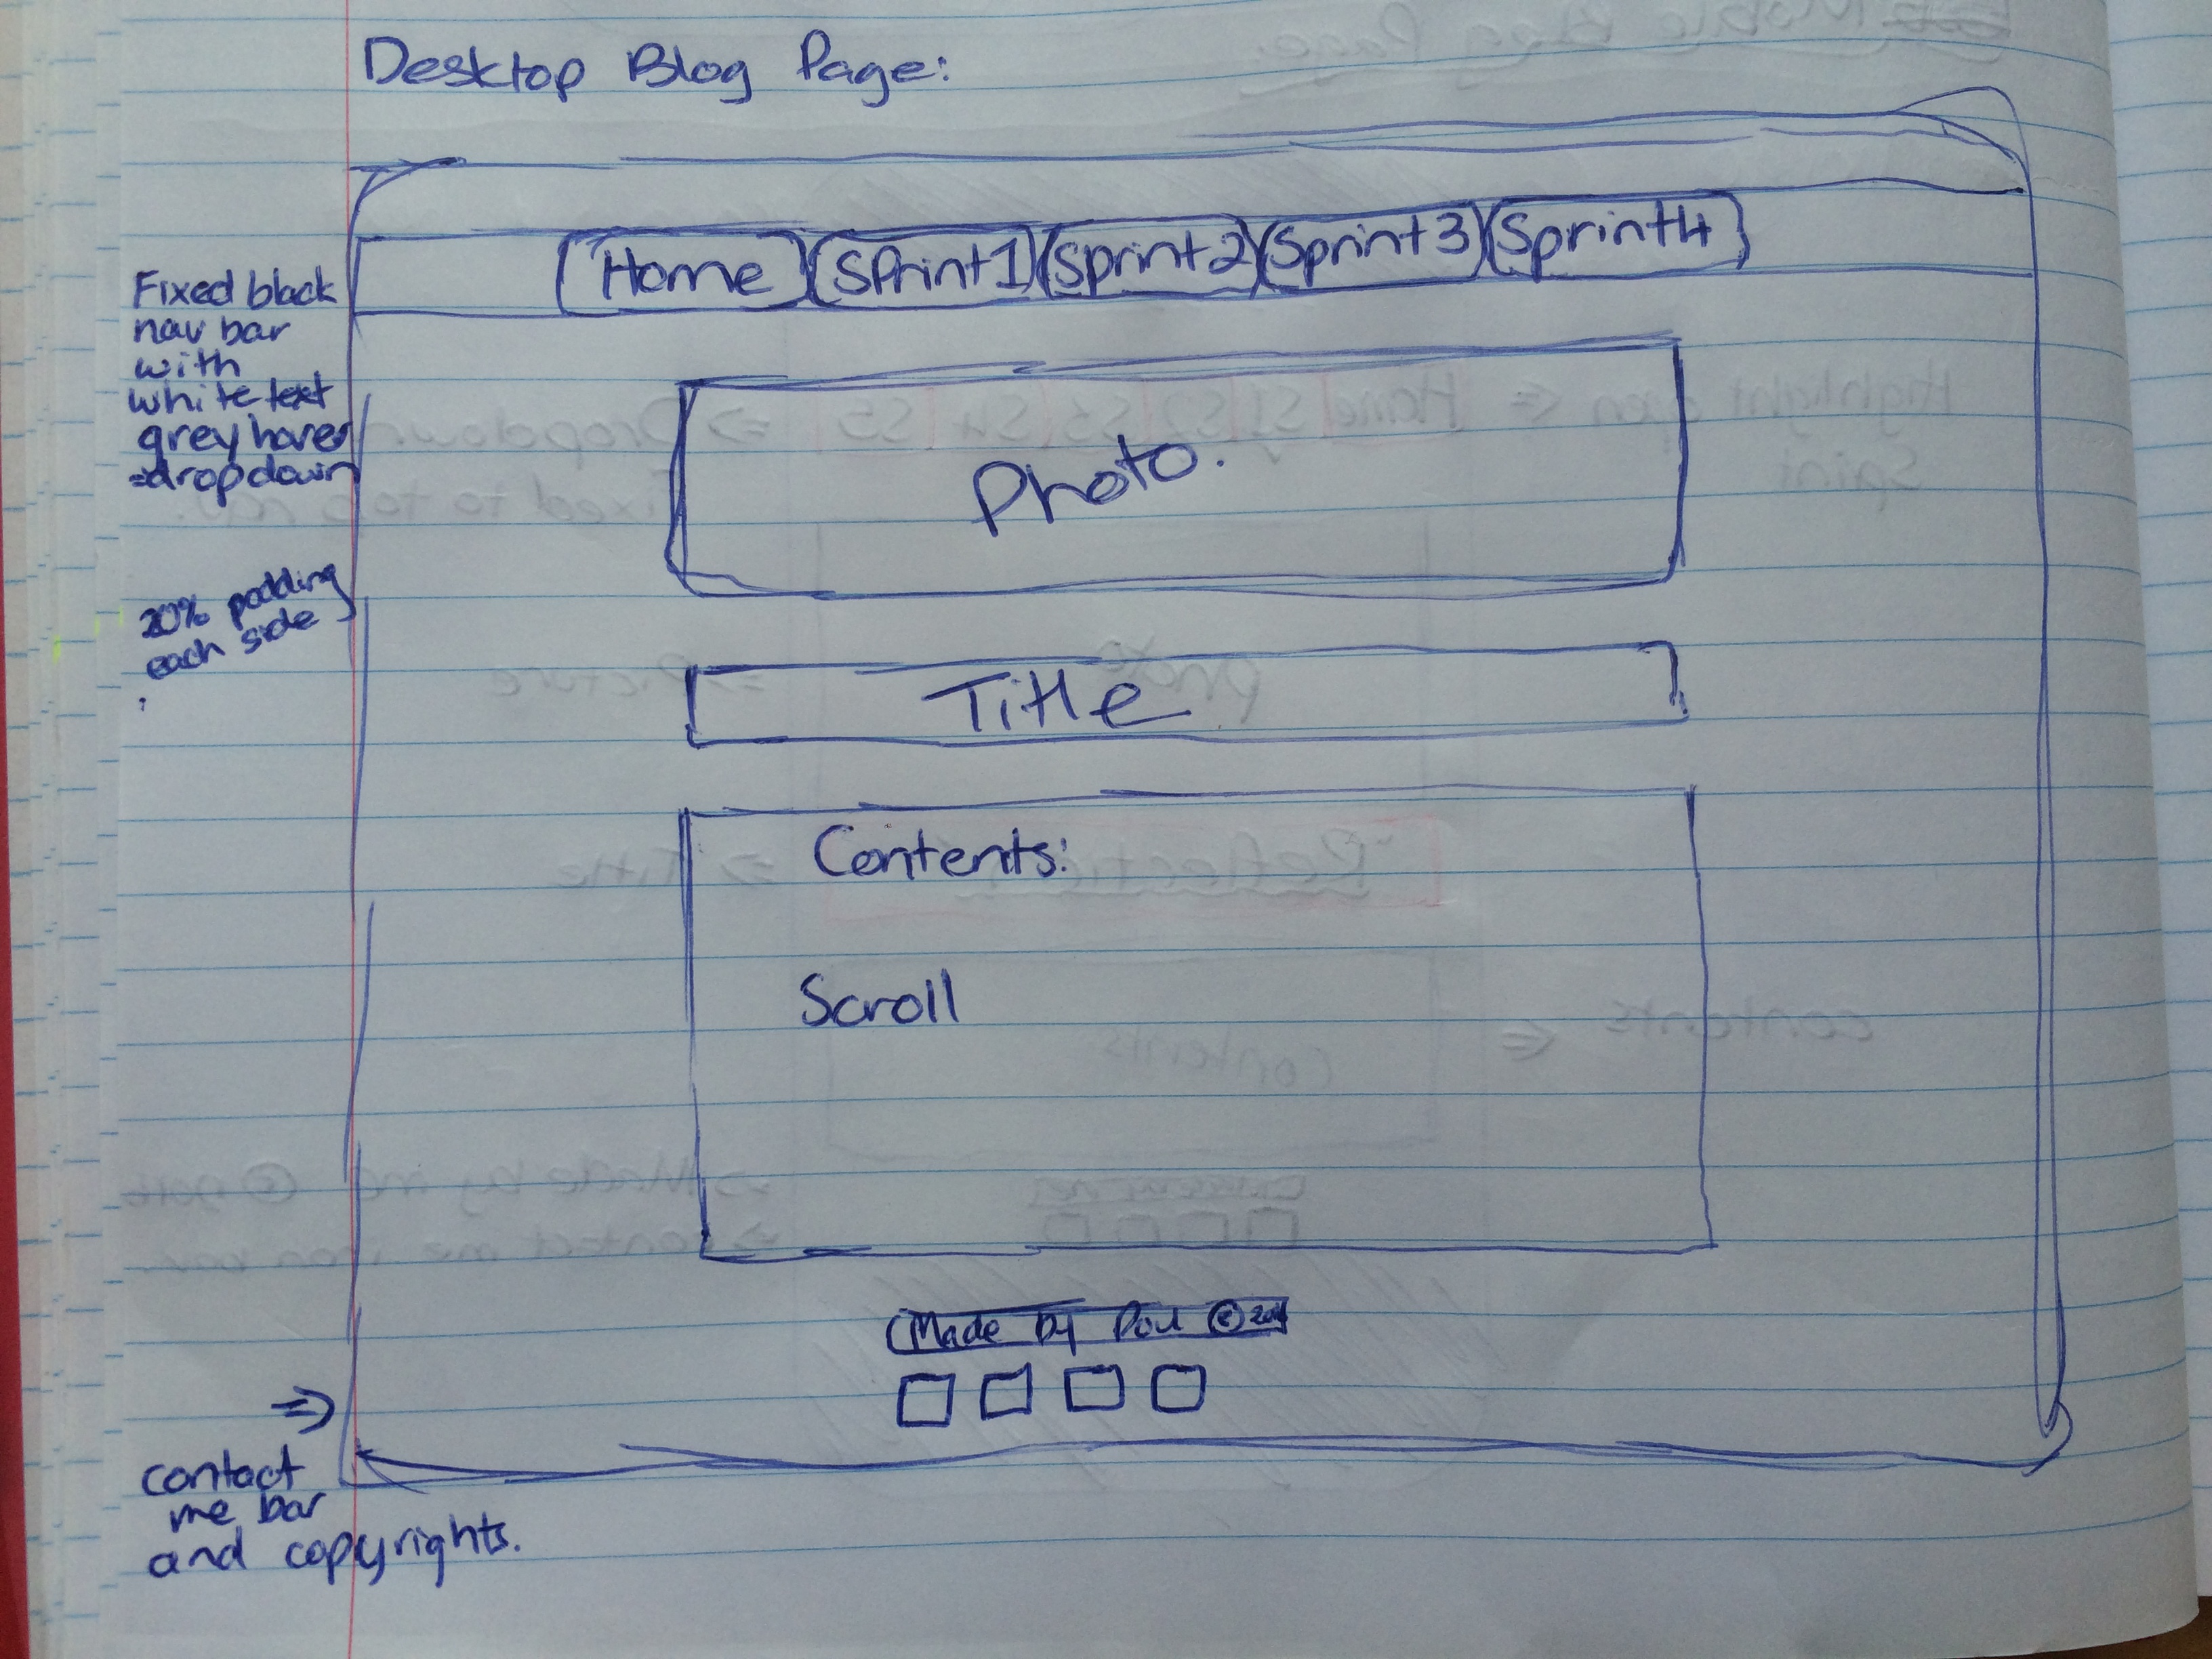 Desktop Blog Page:
Home Sprint1 Sprint2 Sprint3 Sprint4
Fixed black
nav bar
with
white text
grey hover
=dropdown
Photo.
20% padding
each side
Title
Contents:
Scroll
Made by ©
⇒
contact
me bar
and copyrights.